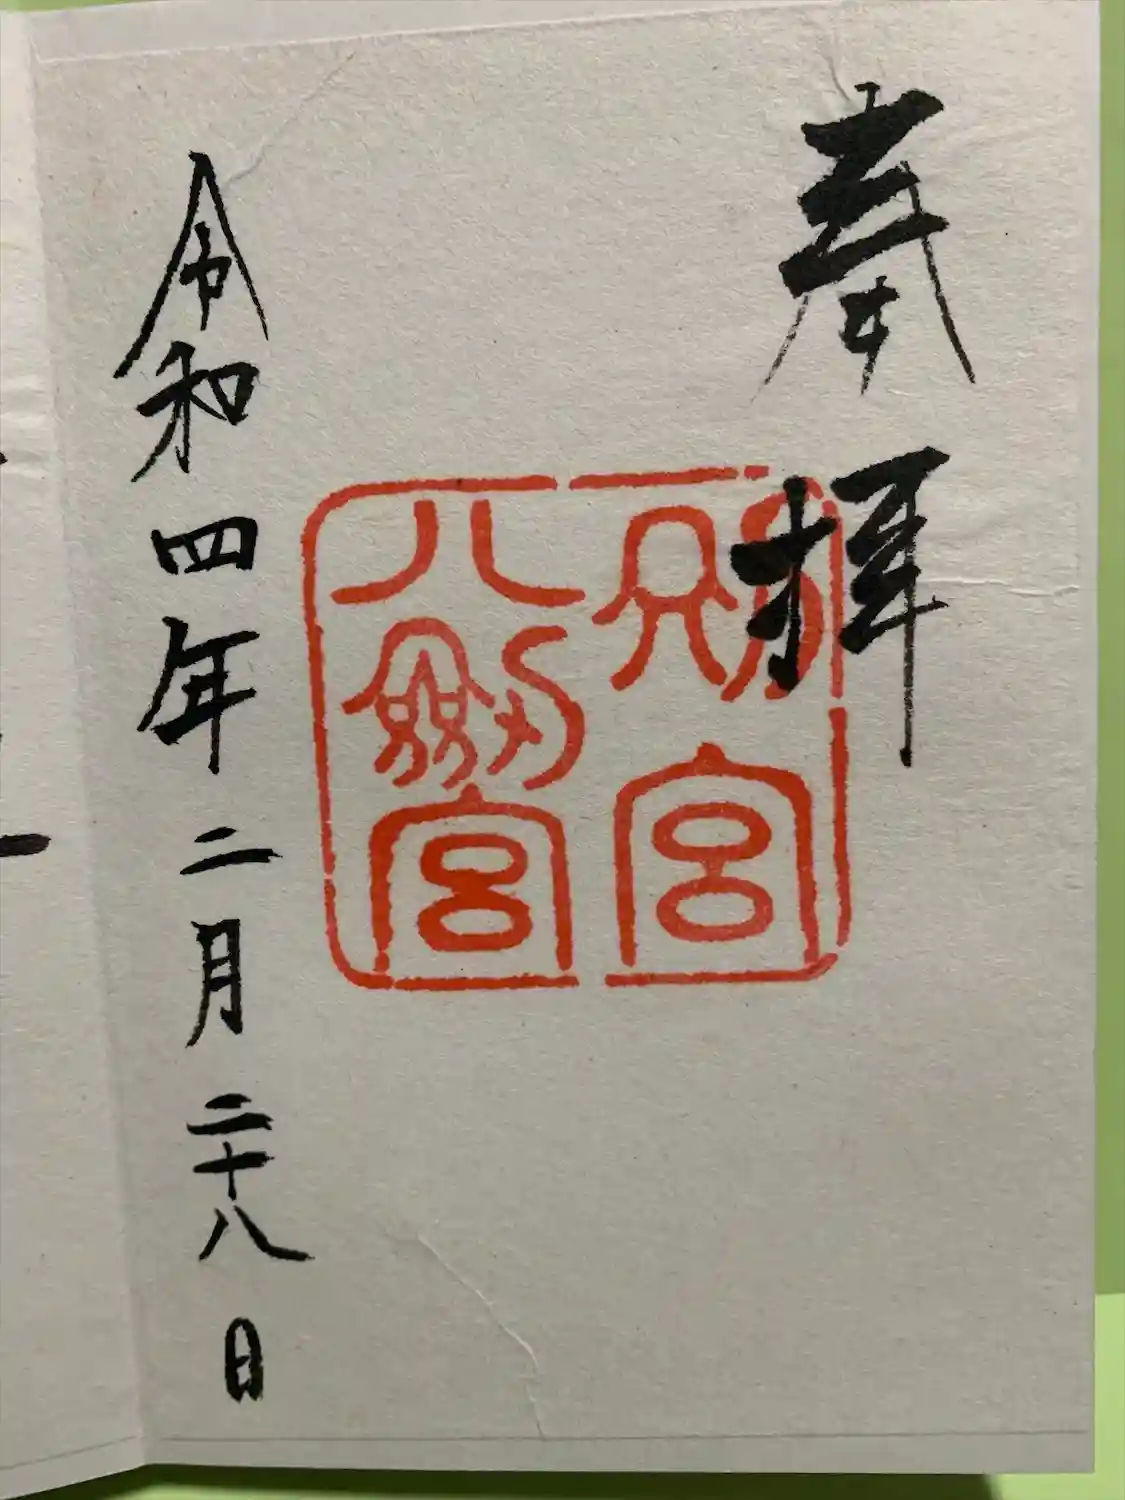 奉拝
別宮
八劔宮
令和四年二月二十八日